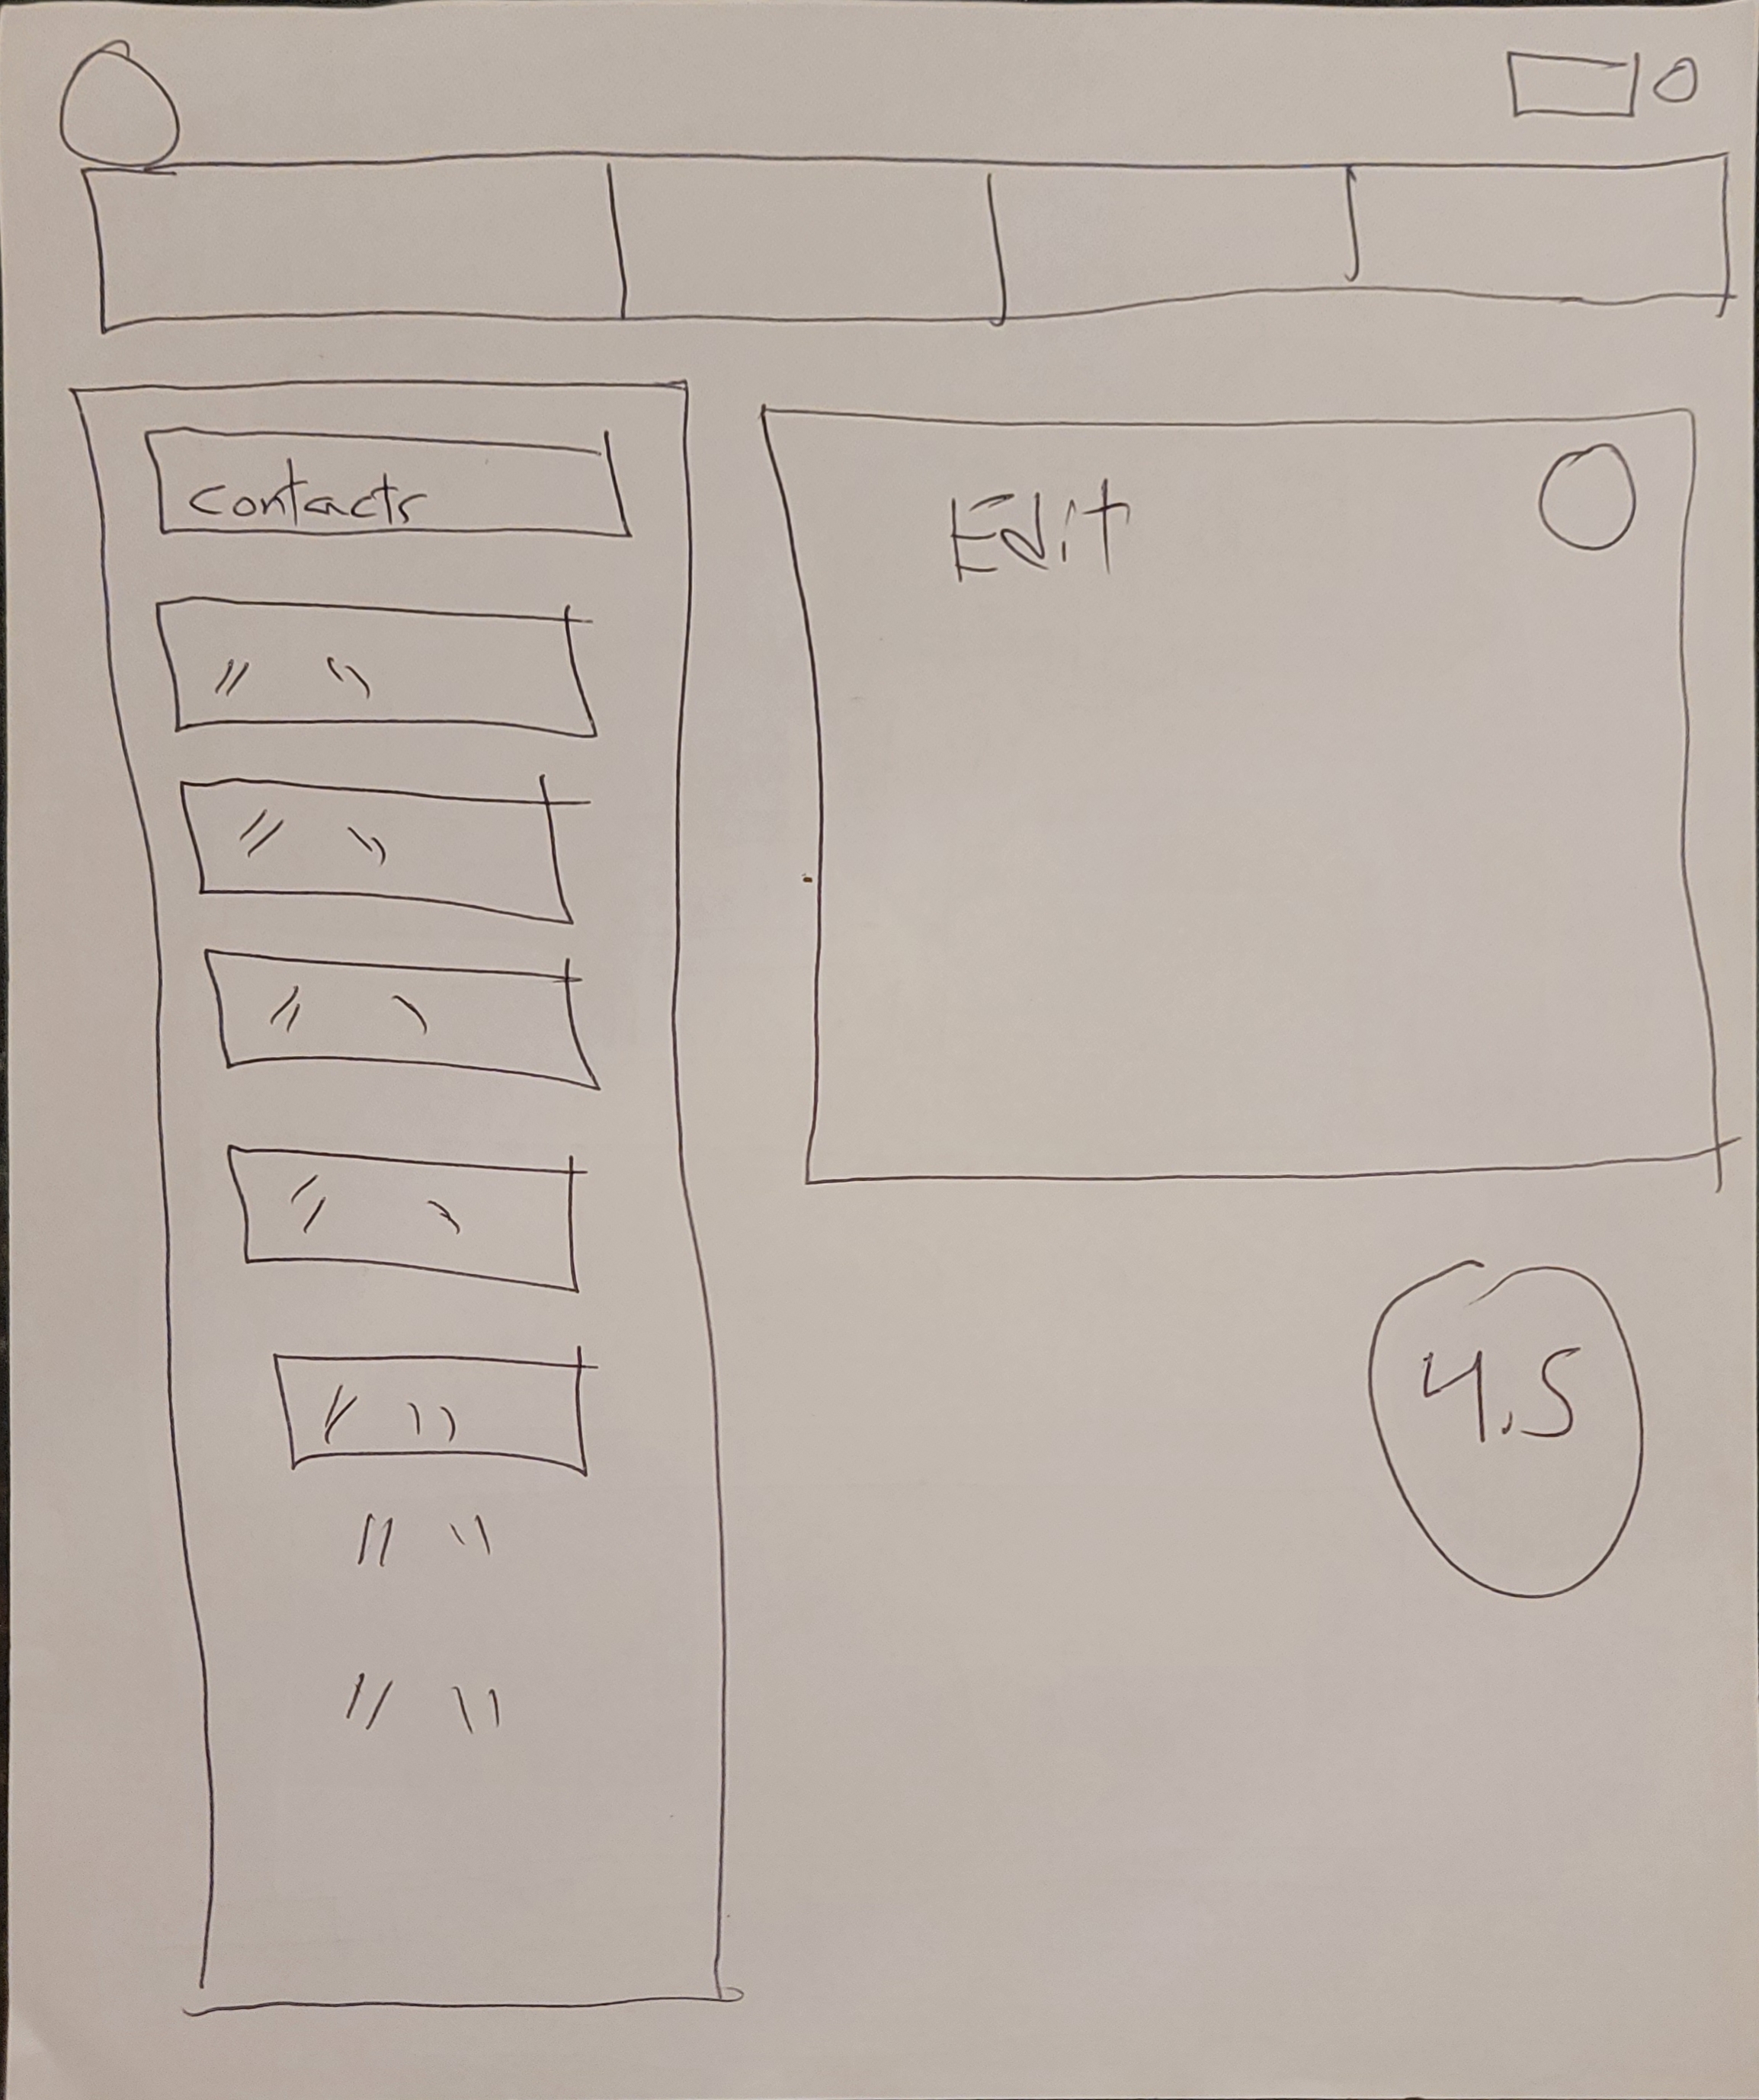 contacts
Edit
4.5